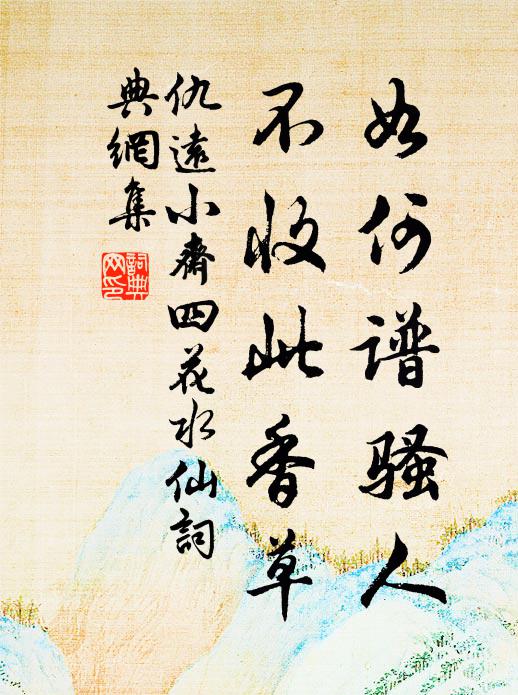 如何谱骚人
不收此香草
仇遠小齋四花水仙詞
典網集
詞典
网印